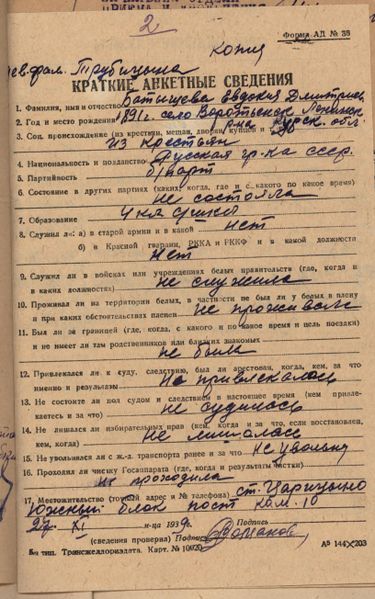 2
Форма АД № 38
Копия
дев. фам. Трубицына
КРАТКИЕ АНКЕТНЫЕ СВЕДЕНИЯ
1. Фамилия, имя и отчество Батищева Евдокия Дмитриев.
2. Год и место рождения 1891г. село Ленинск.
р-на Курск. обл.
3. Соц. происхождение (из крестьян, мещан, дворян, купцов и т. д.)
из крестьян
4. Национальность и подданство Русская гр-ка СССР.
5. Партийность б/парт
6. Состояние в других партиях (каких, когда, где и с какого по какое время)
не состояла
7. Образование 4 кл с/школ
8. Служил ли: а) в старой армии и в какой нет
б) в Красной гвардии, РККА и РККФ и в какой должности
нет
9. Служил ли в войсках или учреждениях белых правительств (где, когда и
в каких должностях) не служила
10. Проживал ли на территории белых, в частности не был ли у белых в плену
и при каких обстоятельствах пленен не проживала
11. Был ли за границей (где, когда, с какого и по какое время и цель поездки)
и не имеет ли там родственников или близких знакомых
не была
12. Привлекался ли к суду, следствию, был ли арестован, когда, кем, за что
именно и результаты Не привлекалась
13. Не состоите ли под судом и следствием в настоящее время (кем привле-
каетесь и за что) не судилась
14. Не лишался ли избирательных прав (кем, когда и за что, если восстановлен,
кем, когда) Не лишалась
15. Не увольнялся ли с ж.-д. транспорта ранее и за что не увольн.
16. Проходил ли чистку Госаппарата (где, когда и результаты чистки)
не проходила
17. Местожительство (точный адрес и № телефона) ст. Царицыно
Южный блок пост ком. 10
27. XI н-ца 1939г. Подпись
(сведения проверил) Подпись Романов
8-я тип. Трансжелдориздата. Карт. № 10020